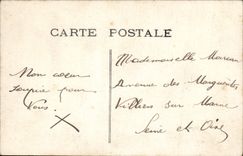 CARTE POSTALE
Mon cœur
soupire pour
Vous !
X
Mademoiselle Moreau
Avenue des Marguerites
Villiers sur Marne
Seine et Oise